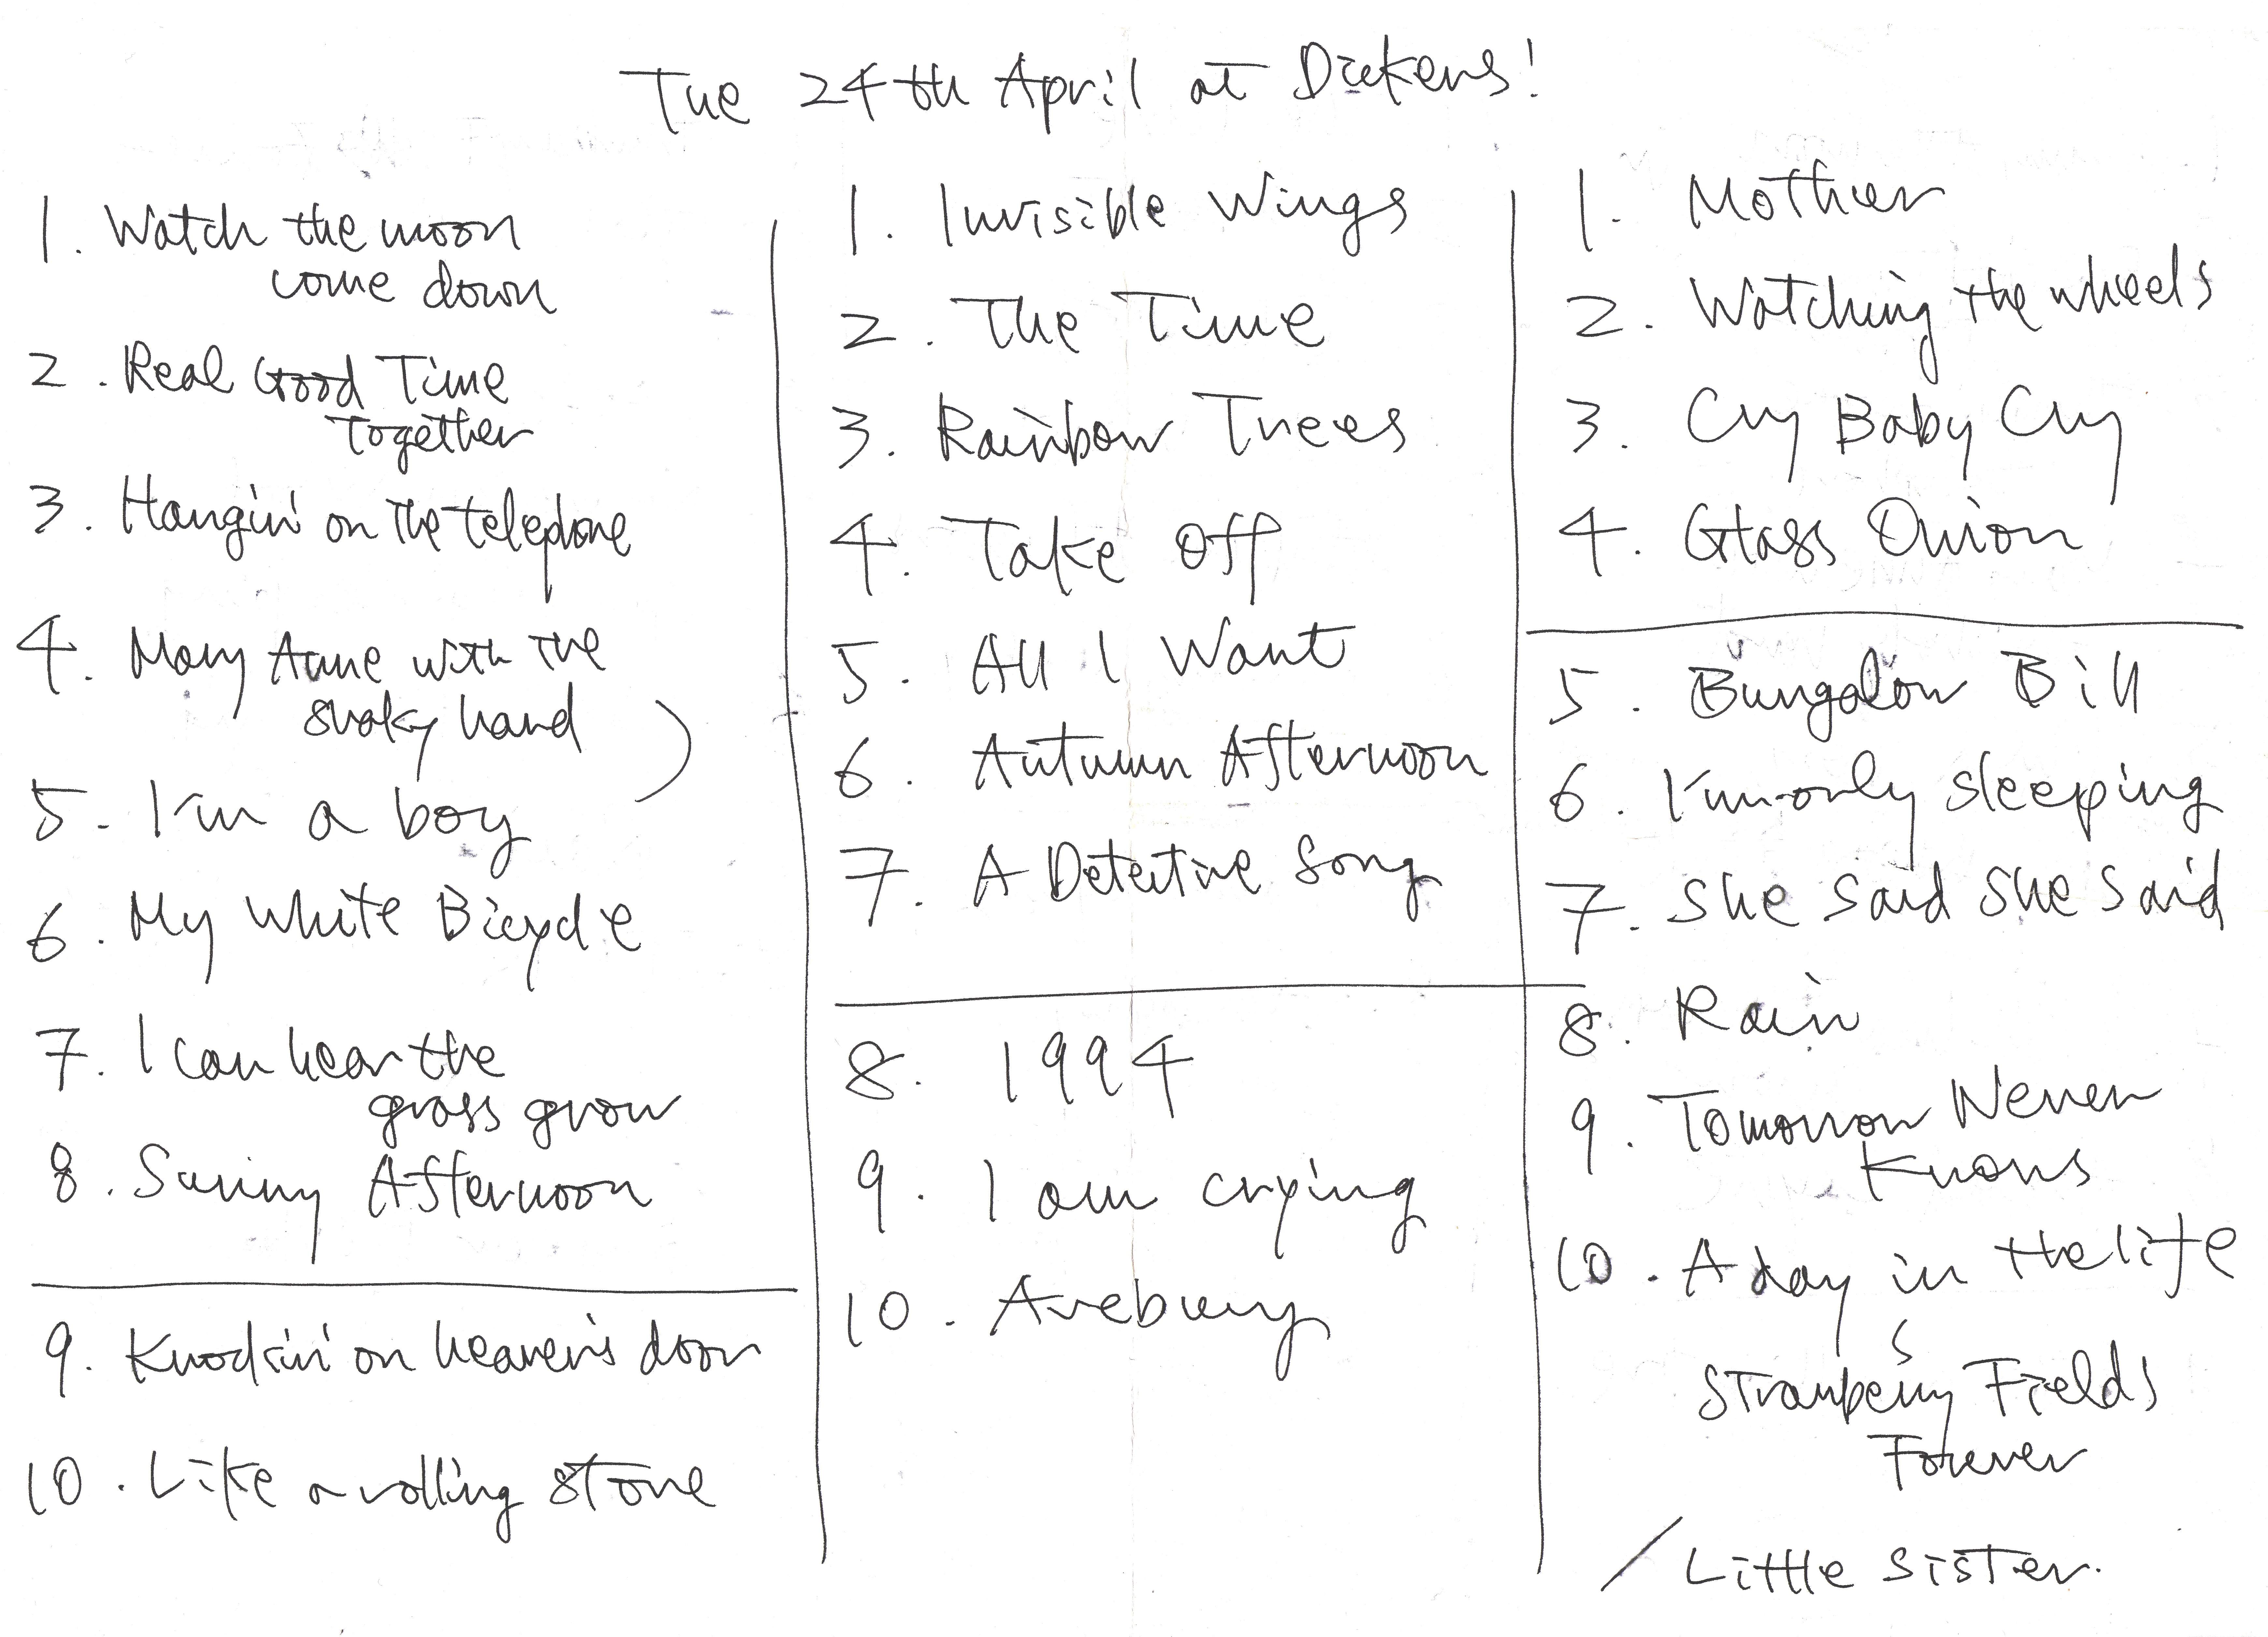 Tue 24th April at Dickens!
1. Watch the moon
come down
2. Real Good Time
Together
3. Hangin' on the telephone
4. Mary Anne with the
shaky hand
5. I'm a boy
6. My White Bicycle
7. I can hear the
grass grow
8. Sunny Afternoon
9. Knockin' on heaven's door
10. Like a rolling stone
1. Invisible Wings
2. The Time
3. Rainbow Trees
4. Take Off
5. All I Want
6. Autumn Afternoon
7. A Detective Song
8. 1994
9. I am crying
10. Avebury
1. Mother
2. Watching the wheels
3. Cry Baby Cry
4. Glass Onion
5. Bungalow Bill
6. I'm only sleeping
7. She Said She Said
8. Rain
9. Tomorrow Never
Knows
10. A day in the life
Strawberry Fields
Forever
/ Little Sister.